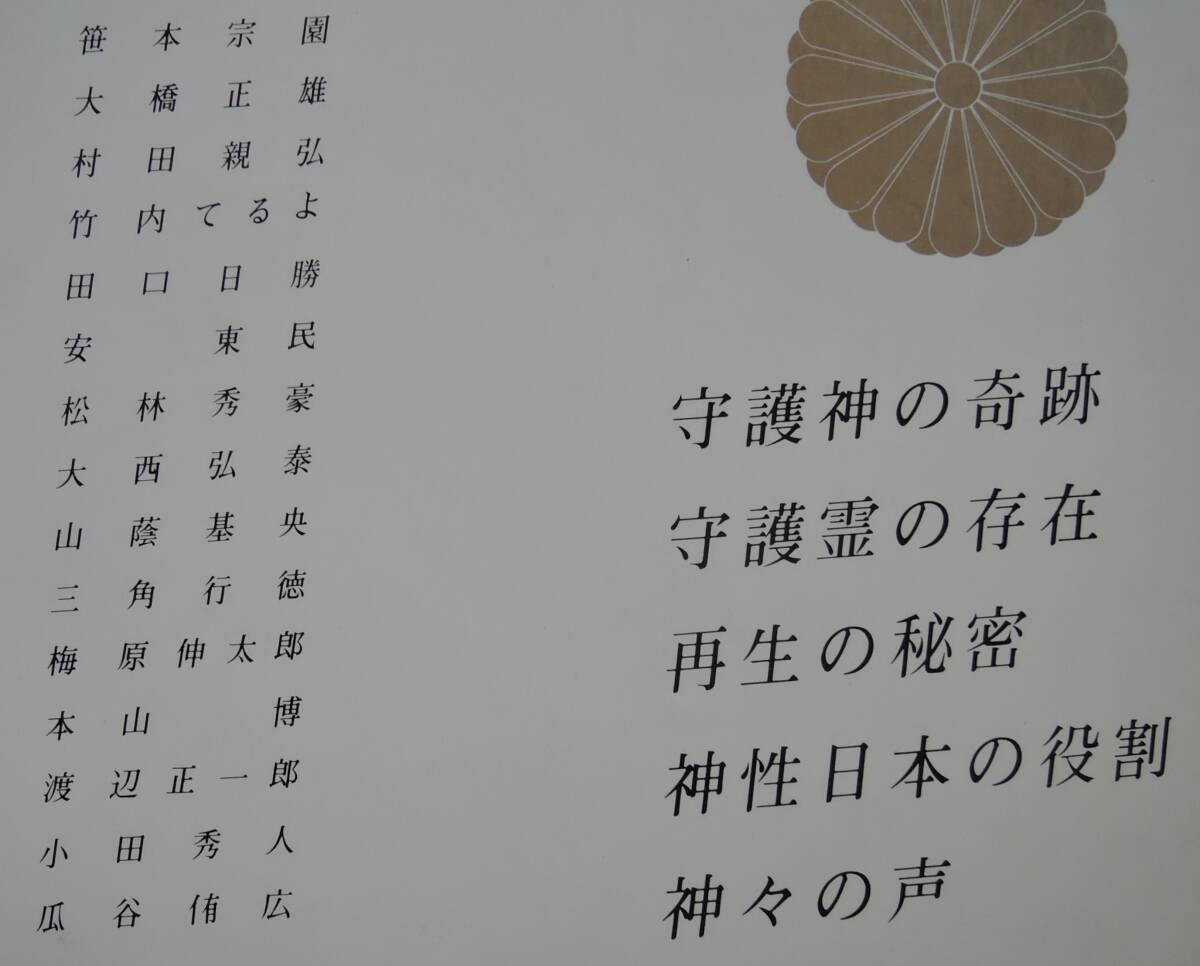 笹本宗園
大橋正雄
村田親弘
竹内てるよ
田口日勝
安東民
松林秀豪
大西弘泰
山蔭基央
三角行徳
梅原伸太郎
本山博
渡辺正一郎
小田秀人
瓜谷侑広
守護神の奇跡
守護霊の存在
再生の秘密
神性日本の役割
神々の声